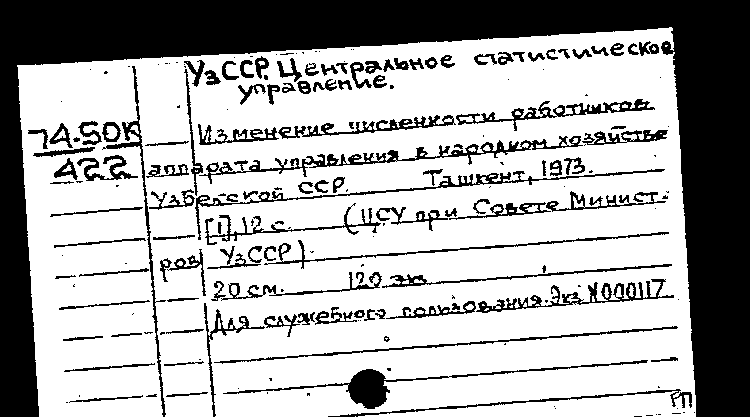 УзССР. Центральное статистическое
управление.
74-50К
422
Изменение численности работников
аппарата управления в народном хозяйстве
Узбекской ССР. Ташкент, 1973.
[1], 12 с. (ЦСУ при Совете Минист-
ров УзССР).
20 см. 120 экз
Для служебного пользования. Экз №000117
РП